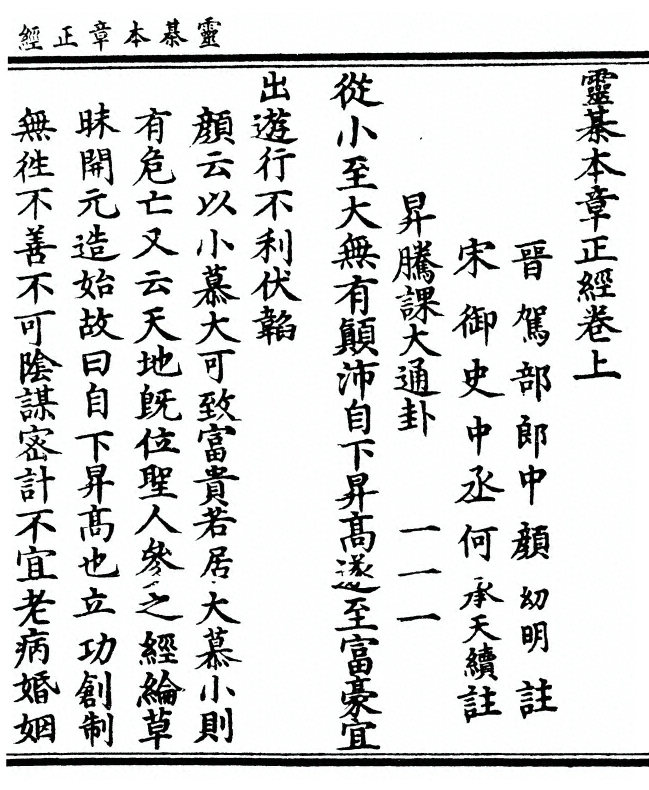 靈棊本章正經
靈棊本章正經卷上
晉駕部郎中顏幼明註
宋御史中丞何承天續註
昇騰課大通卦 一一一
從小至大無有顛沛自下昇髙遂至富豪宜
出遊行不利伏韜
顏云以小慕大可致富貴若居大慕小則
有危亡又云天地旣位聖人參之經綸草
昧開元造始故曰自下昇髙也立功創制
無徃不善不可陰謀宻計不宜老病婚姻